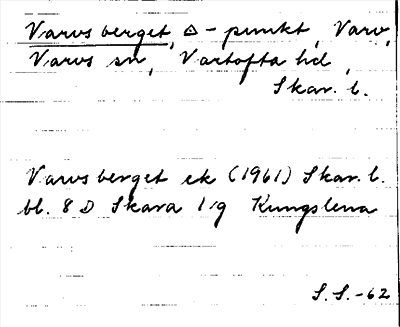 Varvsberget, △-punkt, Varv,
Varvs sn, Vartofta hd,
Skar. l.
Varvsberget ek (1961) Skar. l.
bl. 8 D Skara 1/g Kungslena
S.S.-62